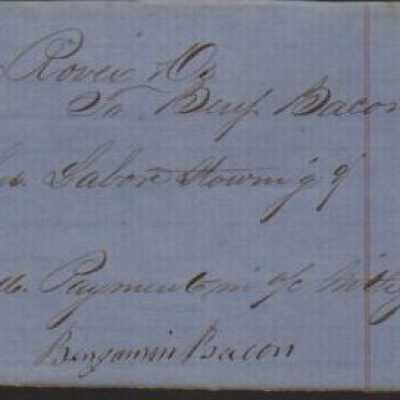 Rover Dr
To Benj Bacon
Labor Stowing
Payment in a/c with
Benjamin Bacon